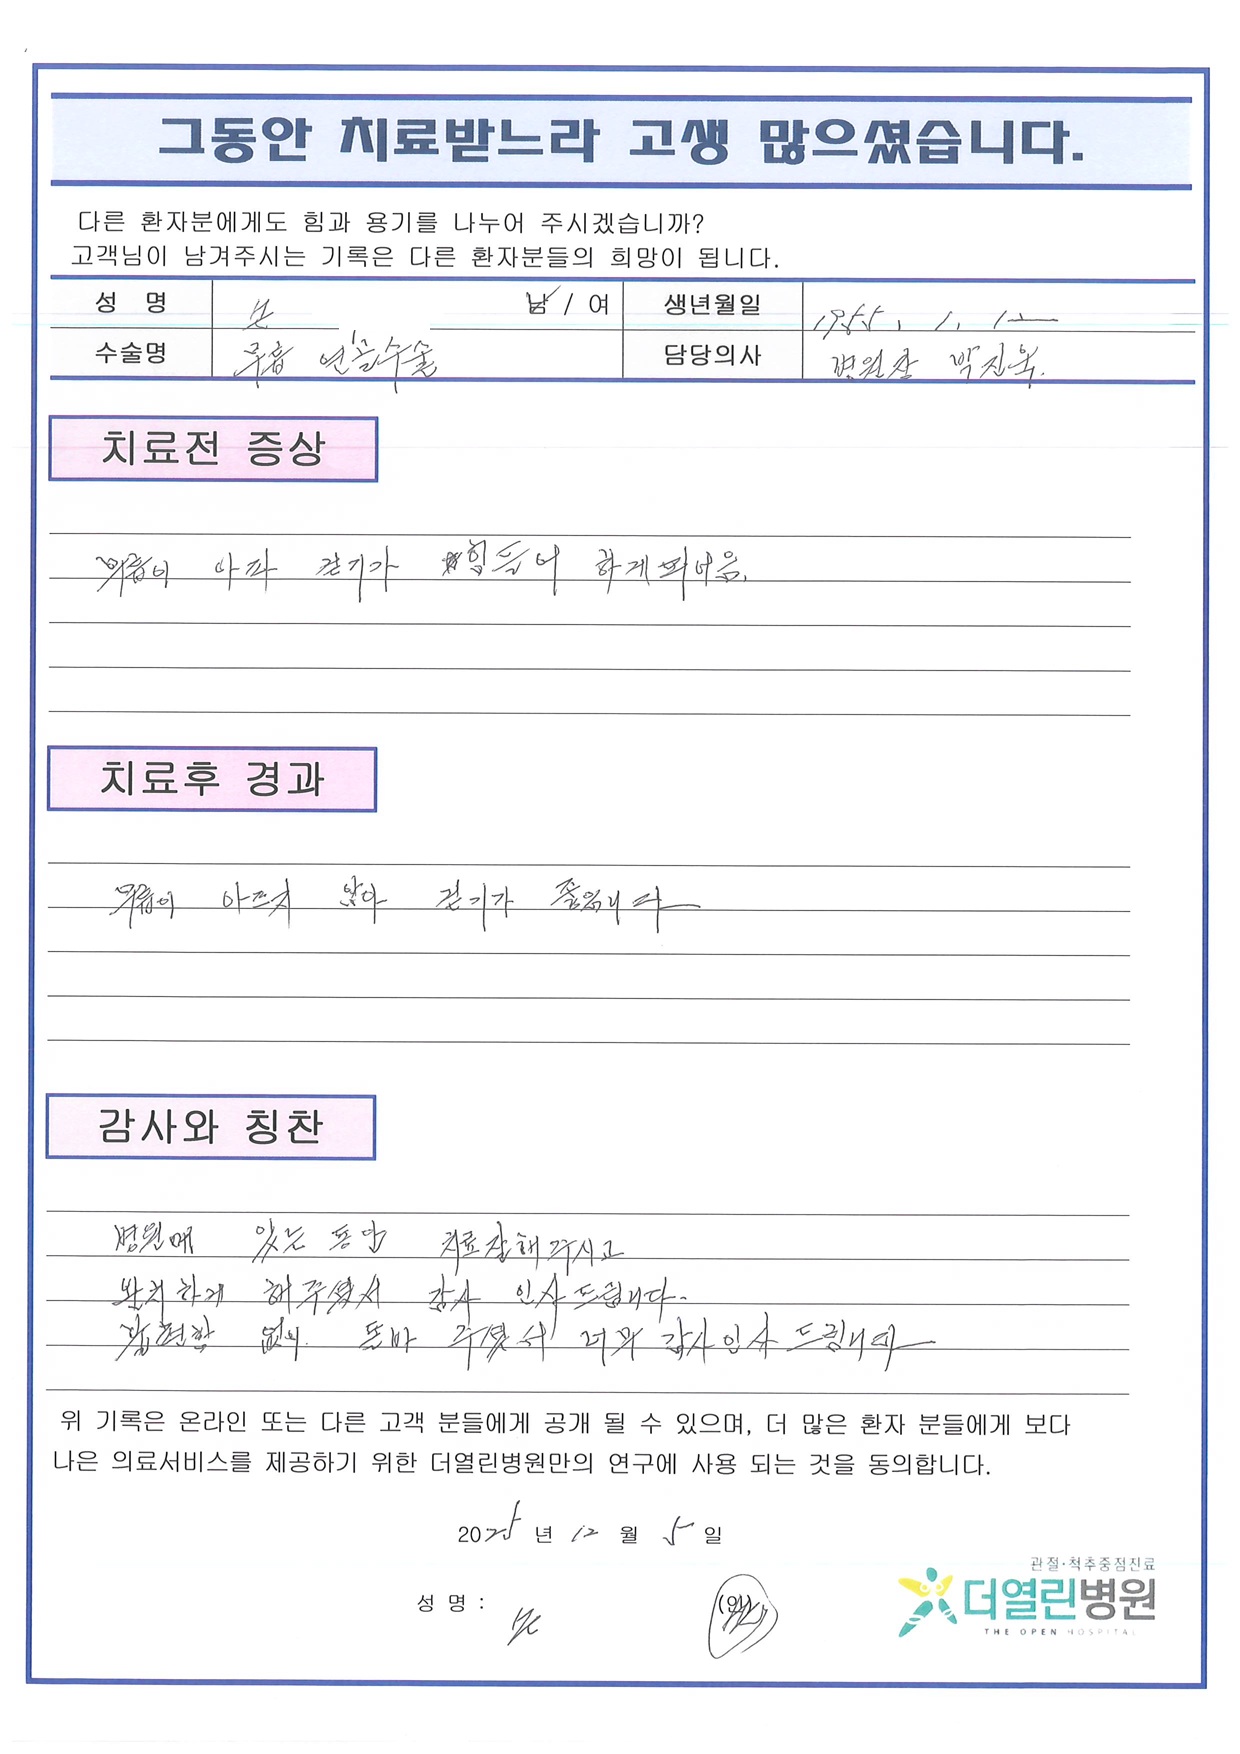 그동안 치료받느라 고생 많으셨습니다.
다른 환자분에게도 힘과 용기를 나누어 주시겠습니까?
고객님이 남겨주시는 기록은 다른 환자분들의 희망이 됩니다.
성 명 남 / 여 생년월일 1955. 1. 12
수술명 무릎 연골수술 담당의사 병원장 박진욱.
치료전 증상
무릎이 아파 걷기가 힘들어 하게 되어음.
치료후 경과
무릎이 아프지 않아 걷기가 좋읍니다
감사와 칭찬
병원에 있는 동안 치료 잘 해 주시고
완치하게 해주셨서 감사 인사 드립니다.
불편함 없이 돌바 주셨서 너무 감사 인사 드립니다
위 기록은 온라인 또는 다른 고객 분들에게 공개 될 수 있으며, 더 많은 환자 분들에게 보다
나은 의료서비스를 제공하기 위한 더열린병원만의 연구에 사용 되는 것을 동의합니다.
2025 년 12 월 5 일
관절·척추중점진료
성 명 : (인)
더열린병원
THE OPEN HOSPITAL